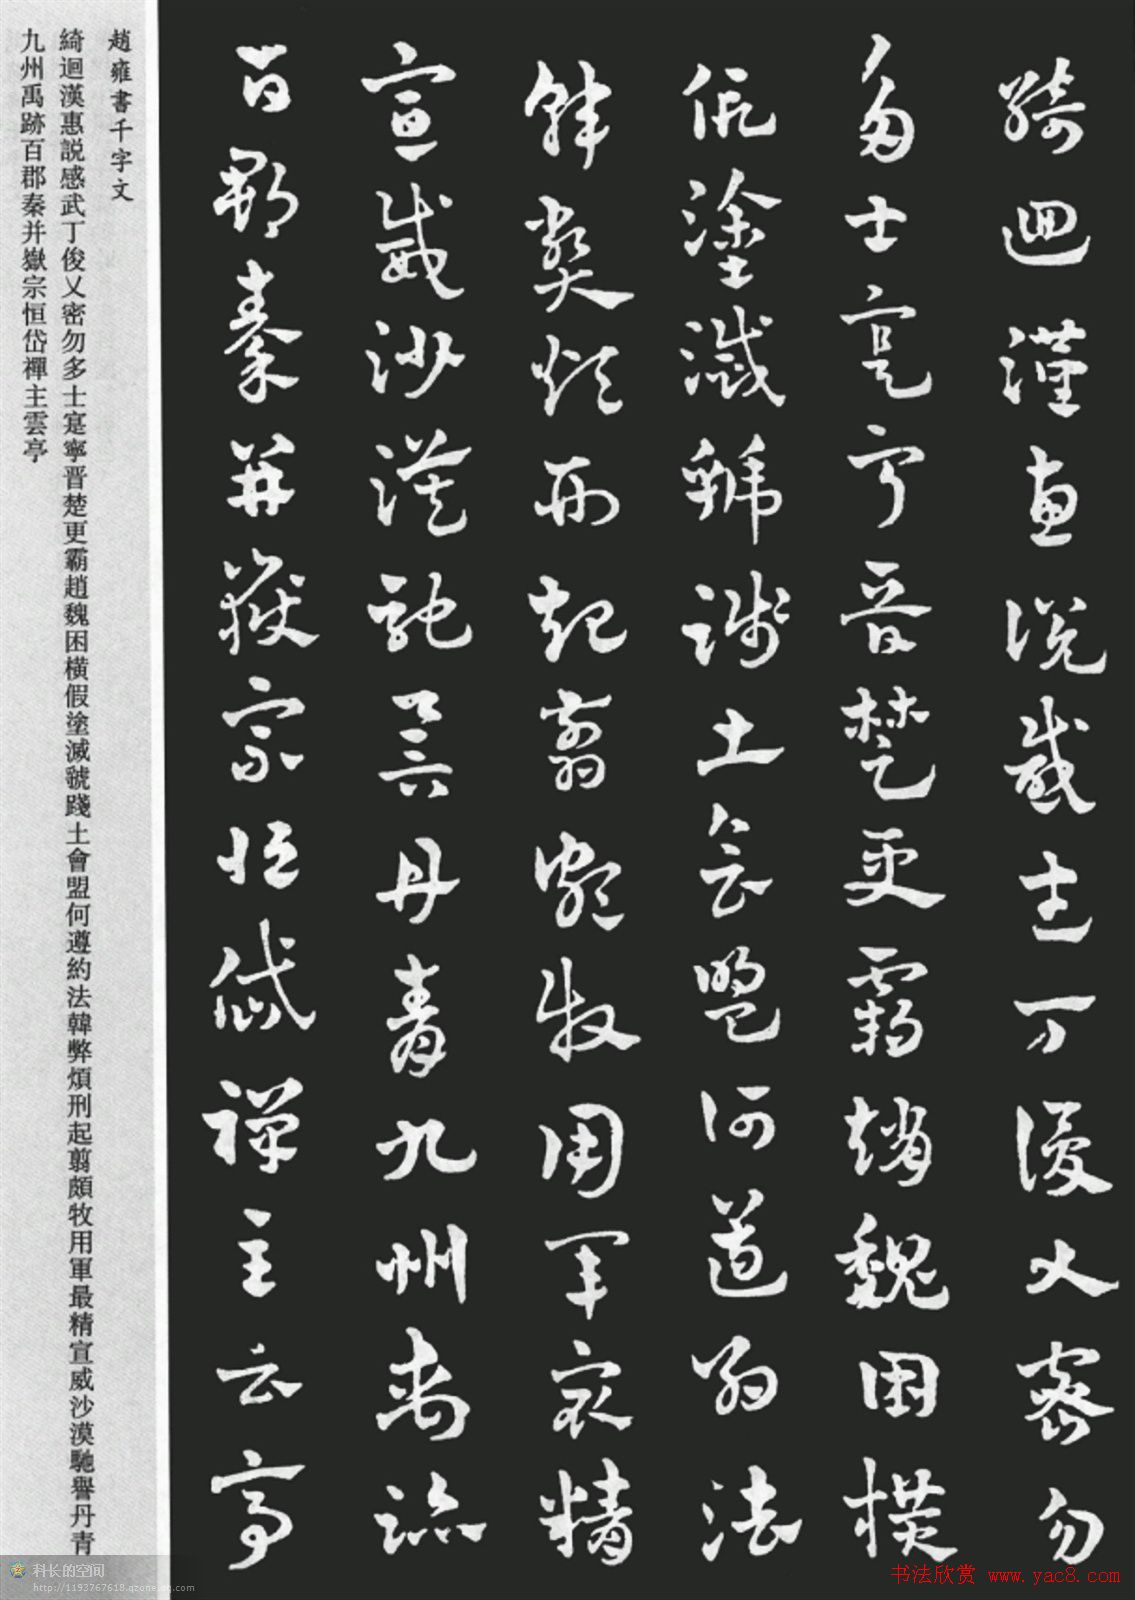 綺迴漢惠説感武丁俊乂密勿
多士寔寧晋楚更霸趙魏困横
假塗滅虢踐土會盟何遵約法
韓弊煩刑起翦頗牧用軍最精
宣威沙漠馳譽丹青九州禹跡
百郡秦并嶽宗恒岱禪主云亭
趙雍書千字文
綺迴漢惠説感武丁俊乂密勿多士寔寧晋楚更霸趙魏困横假塗滅虢踐土會盟何遵約法韓弊煩刑起翦頗牧用軍最精宣威沙漠馳譽丹青
九州禹跡百郡秦并嶽宗恒岱禪主雲亭
科长的空间
http://1193767618.qzone.qq.com
书法欣赏 www.yac8.com